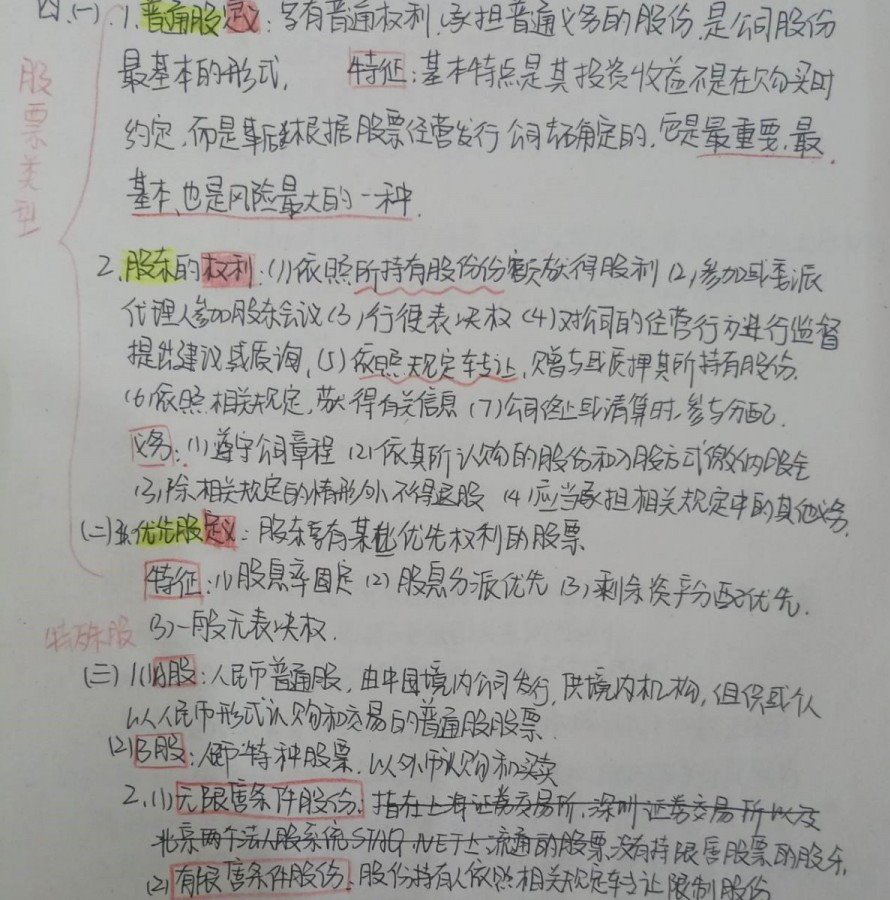 四.(一) 1.普通股定义：享有普通权利,承担普通义务的股份,是公司股份
最基本的形式. 特征:基本特点是其投资收益不是在购买时
约定,而是事后根据股票经营发行公司去确定的,它是最重要,最
基本,也是风险最大的一种.
股票类型
2.股东的权利:(1)依照所持有股份份额获得股利(2)参加或委派
代理人参加股东会议(3)行使表决权(4)对公司的经营行为进行监督
提出建议或质询,(5)依照规定转让,赠与或质押其所持有股份.
(6)依照相关规定,获得有关信息(7)公司终止或清算时,参与分配.
义务:(1)遵守公司章程(2)依其所认购的股份和入股方式缴纳股金
(3)除相关规定的情形外不得退股(4)应当承担相关规定中的其他义务.
(二)优先股定义:股东享有某些优先权利的股票
特征:(1)股息率固定(2)股息分派优先(3)剩余资产分配优先.
(3)一般无表决权.
特殊股
(三)1.(1)A股:人民币普通股,由中国境内公司发行,供境内机构,组织或个人
以人民币形式认购和交易的普通股股票.
(2)B股:特种股票.以外币认购和买卖
2.(1)无限售条件股份:指在上海证券交易所,深圳证券交易所以及
北京两个法人股系统STAQ.NET上流通的股票,没有持限售股票的股东.
(2)有限售条件股份:股份持有人依照相关规定转让限制股份